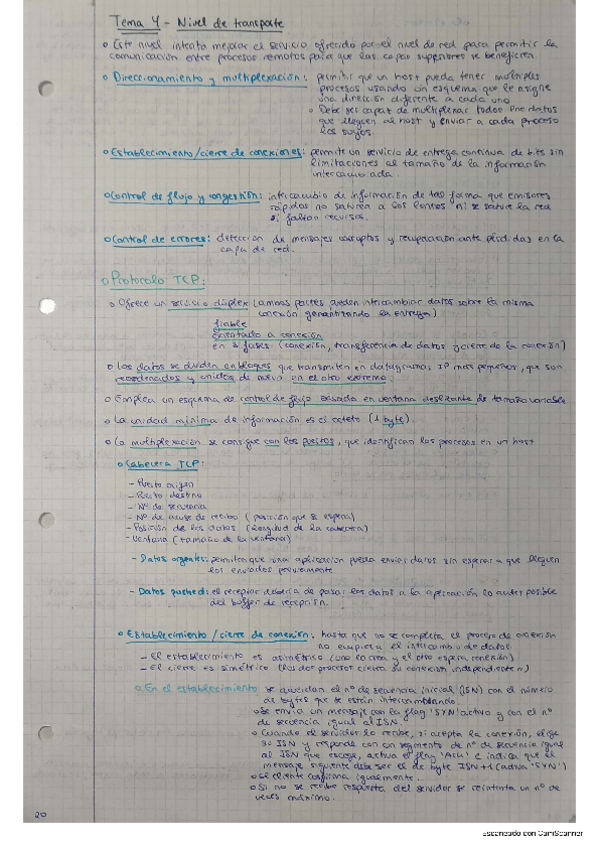 Tema 4 - Nivel de transporte
Este nivel intenta mejorar el servicio ofrecido por el nivel de red para permitir la
comunicación entre procesos remotos para que las capas superiores se beneficien
Direccionamiento y multiplexación: permitir que un host pueda tener múltiples
procesos usando un esquema que le asigne
una dirección diferente a cada uno
Debe ser capaz de multiplexar todos los datos
que lleguen al host y enviar a cada proceso
los suyos.
Establecimiento/cierre de conexiones: permite un servicio de entrega continua de bits sin
limitaciones al tamaño de la información
intercambiada.
Control de flujo y congestión: intercambio de información de tal forma que emisores
rápidos no saturen a los lentos ni se sature la red
si faltan recursos.
Control de errores: detección de mensajes corruptos y recuperación ante pérdidas en la
capa de red.
Protocolo TCP:
Ofrece un servicio dúplex (ambas partes pueden intercambiar datos sobre la misma
conexión garantizando la entrega)
fiable
orientado a conexión
en 3 fases (conexión, transferencia de datos y cierre de la conexión)
Los datos se dividen en bloques que transmiten en datagramas IP más pequeños, que son
reordenados y unidos de nuevo en el otro extremo.
Emplea un esquema de control de flujo basado en ventana deslizante de tamaño variable
La unidad mínima de información es el octeto (1 byte).
La multiplexación se consigue con los puertos, que identifican los procesos en un host
Cabecera TCP:
- Puerto origen
- Puerto destino
- Nº de secuencia
- Nº de acuse de recibo (posición que se espera)
- Posición de los datos (longitud de la cabecera)
- Ventana (tamaño de la ventana)
- Datos urgentes: permiten que una aplicación pueda enviar datos sin esperar a que lleguen
los enviados previamente
- Datos pushed: el receptor debería de pasar los datos a la aplicación lo antes posible
del buffer de recepción.
Establecimiento/cierre de conexión: hasta que no se completa el proceso de conexión
no empieza el intercambio de datos
- El establecimiento es asimétrico (uno lo crea y el otro espera conexión)
- El cierre es simétrico (los dos procesos cierran su conexión independiente)
En el establecimiento se acuerdan el nº de secuencia inicial (ISN) con el número
de bytes que se están intercambiando.
Se envía un mensaje con la flag 'SYN' activo y con el nº
de secuencia igual al ISN.
Cuando el servidor lo recibe, si acepta la conexión, elige
su ISN y responde con un segmento de nº de secuencia igual
al ISN que escoge, activa el flag 'ACK' e indica que el
mensaje siguiente debe ser el de byte ISN+1 (activa 'SYN')
El cliente confirma igualmente.
Si no se recibe respuesta del servidor se reintenta un nº de
veces máximo.
20
Escaneado con CamScanner